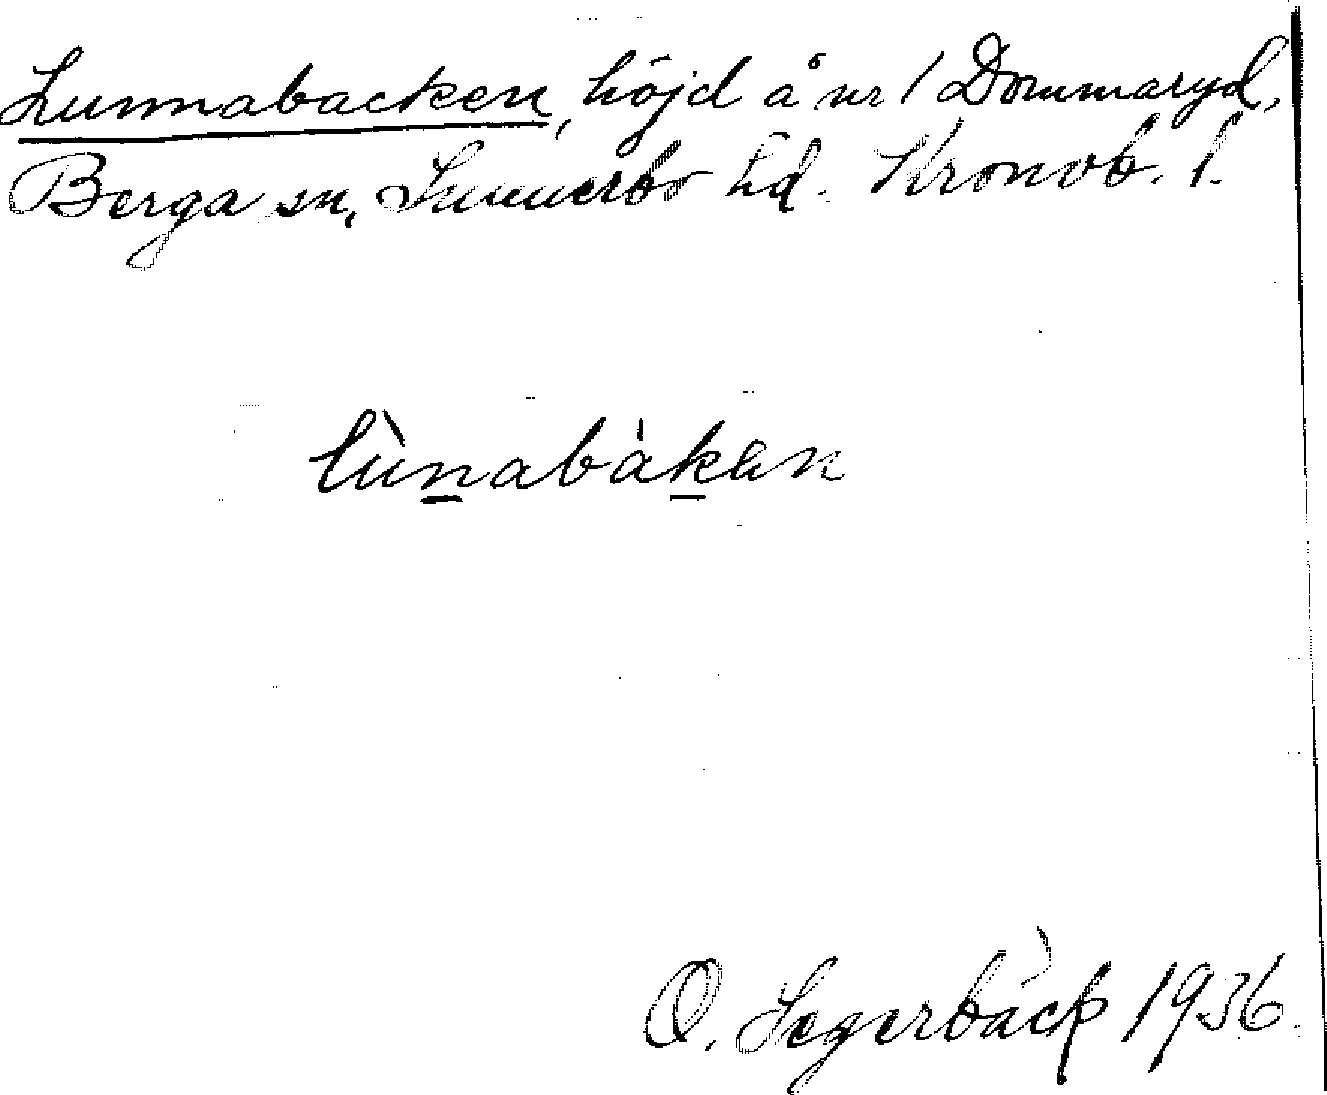 Lunnabacken, höjd å nr 1 Dommaryd,
Berga sn, Sunnerbo hd. Kronob. l.
lùnabàkan
O. Segerbäck 1936.